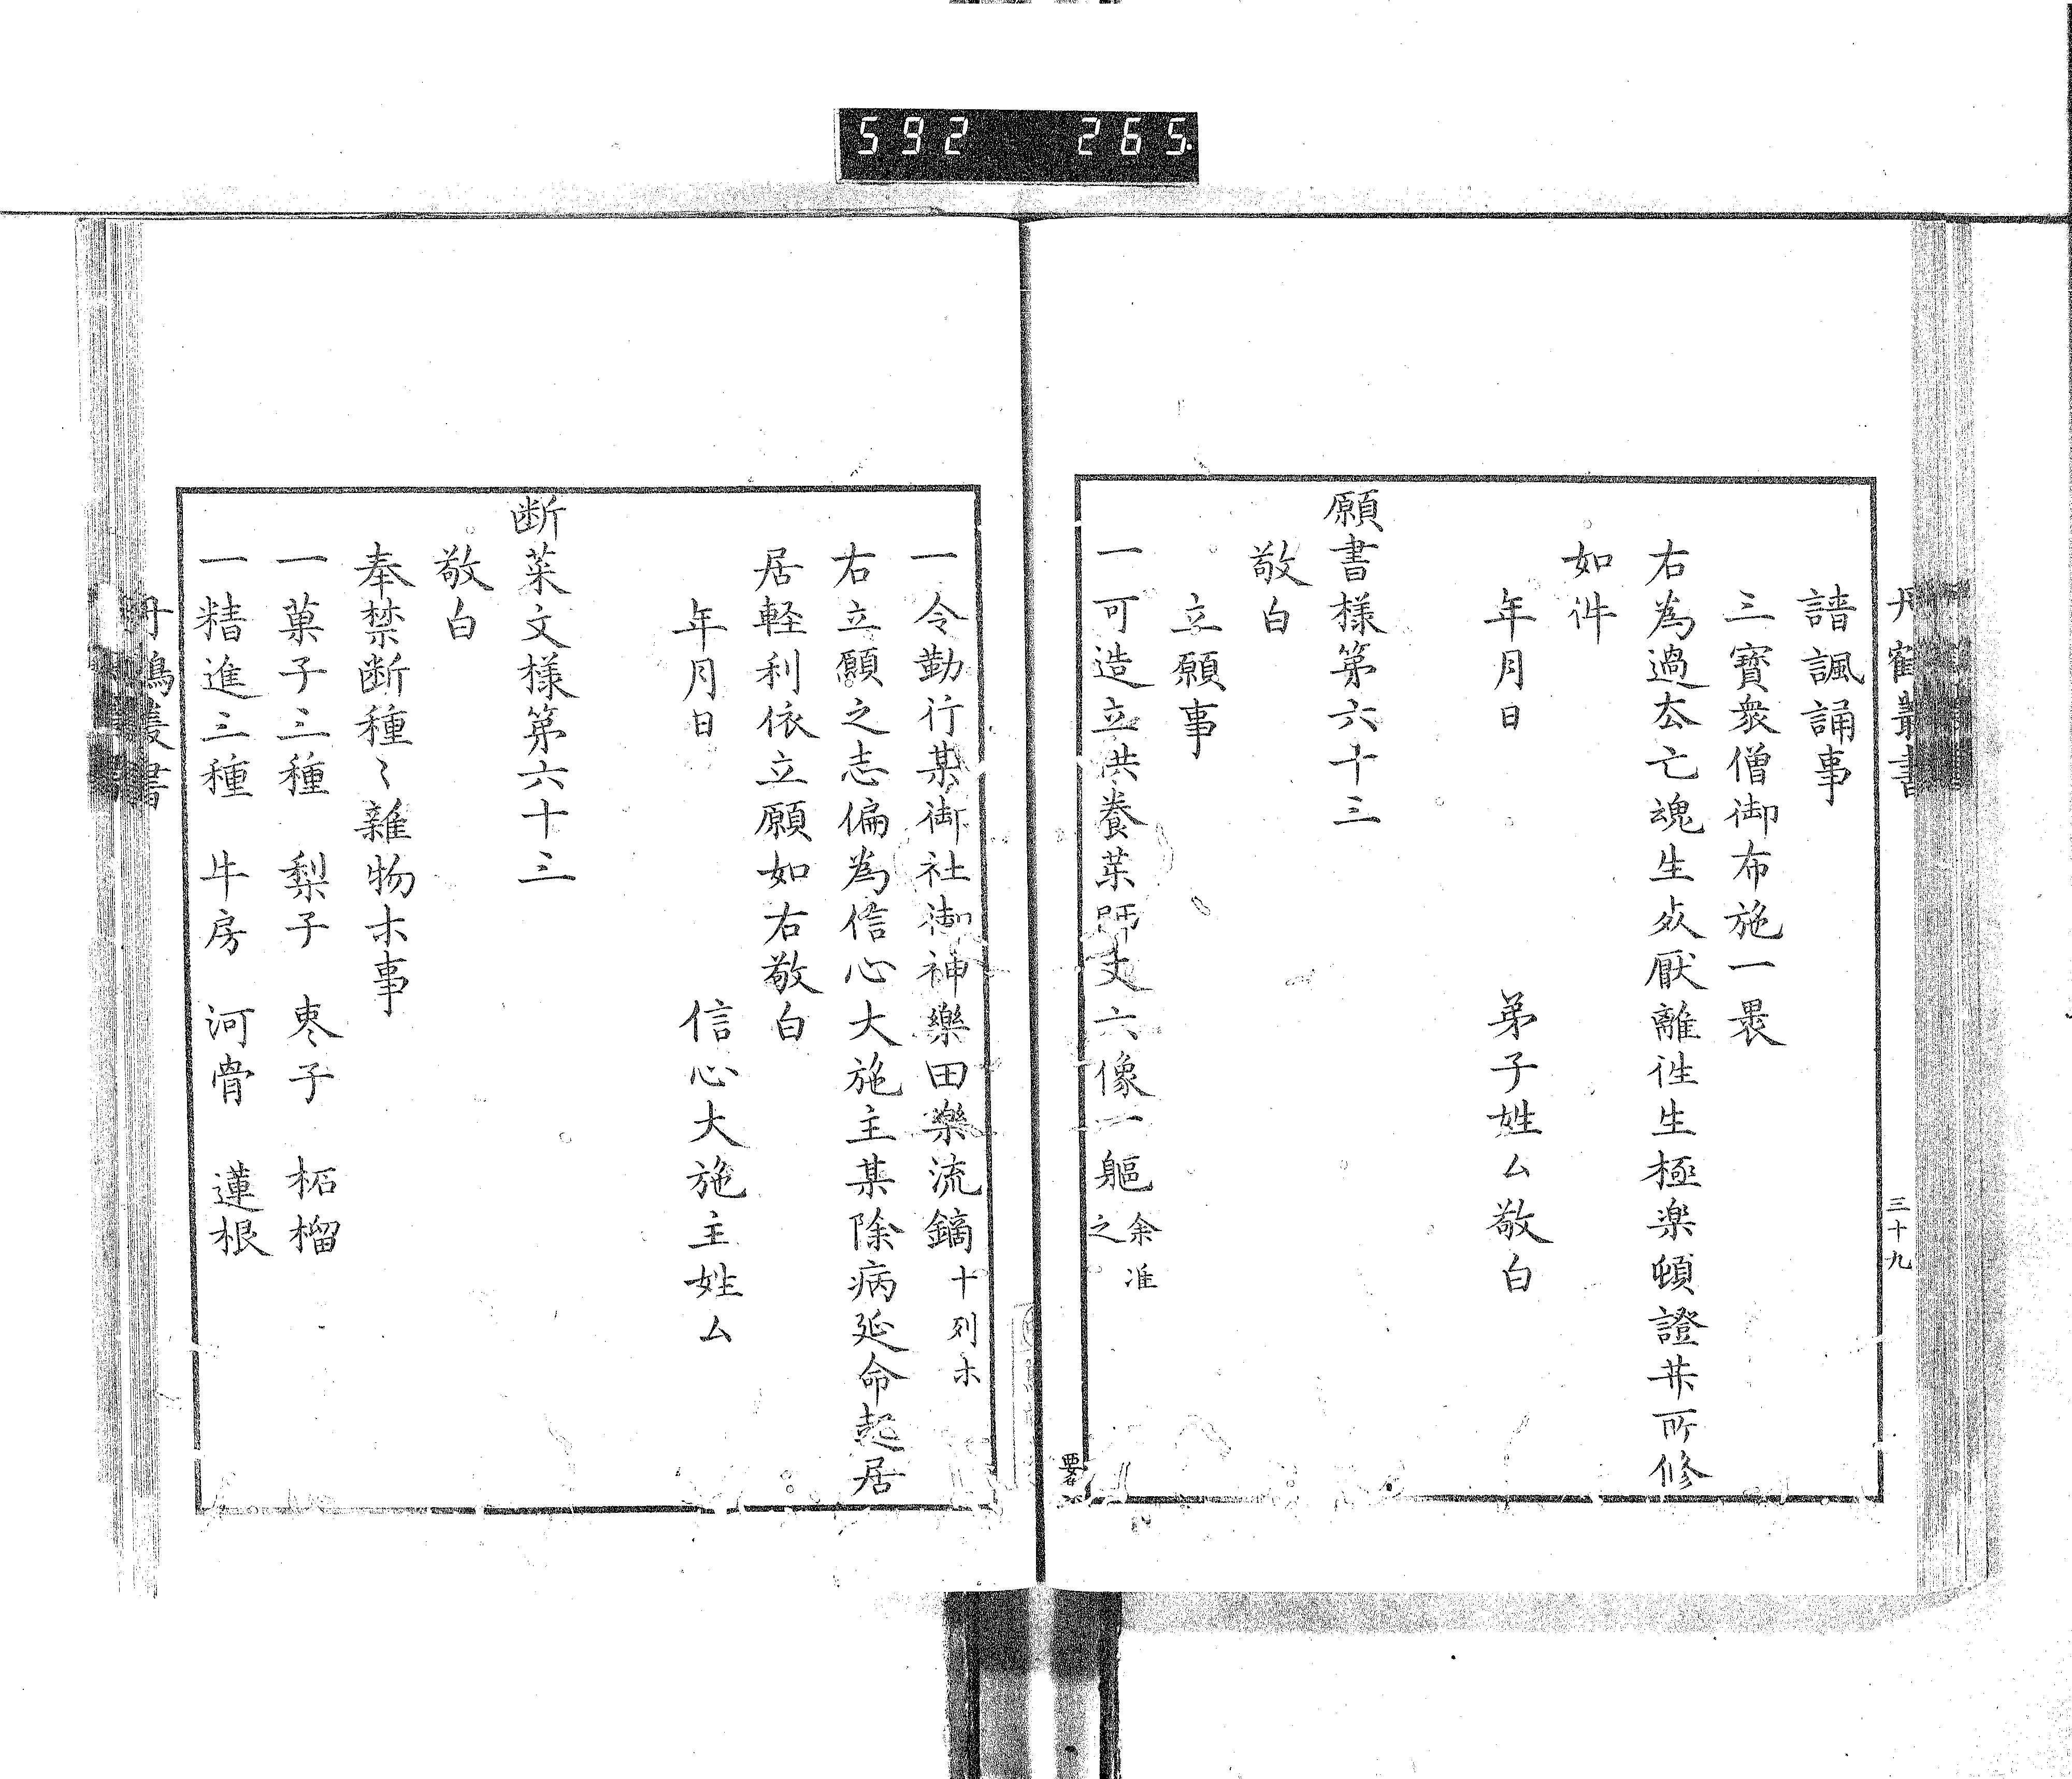 592 265
丹鶴叢書
三十九
諳諷誦事
三寳衆僧御布施一褁
右為過去亡魂生死厭離徃生極楽頓證𦬇所修
如件
年月日
弟子姓ム敬白
願書様第六十三
敬白
立願事
一可造立供養薬師丈六像一軀余准之
一令勤行某御社御神樂田樂流鏑十列木
右立願之志偏為信心大施主某除病延命起居
居軽利依立願如右敬白
年月日
信心大施主姓ム
断菜文様第六十三
敬白
奉禁断種〻雜物木事
一菓子三種 梨子 棗子 柘榴
一精進三種 牛房 河骨 蓮根